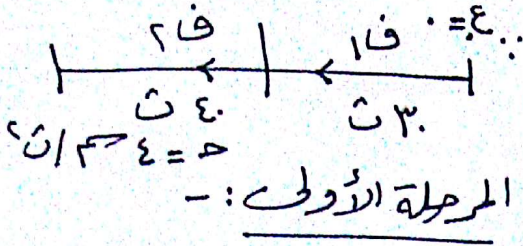 ∴ ع. = ٠ ف١ ف٢
٣٠ ث ٤٠ ث
حـ = ٤ سم/ث٢
المرحلة الأولى :-